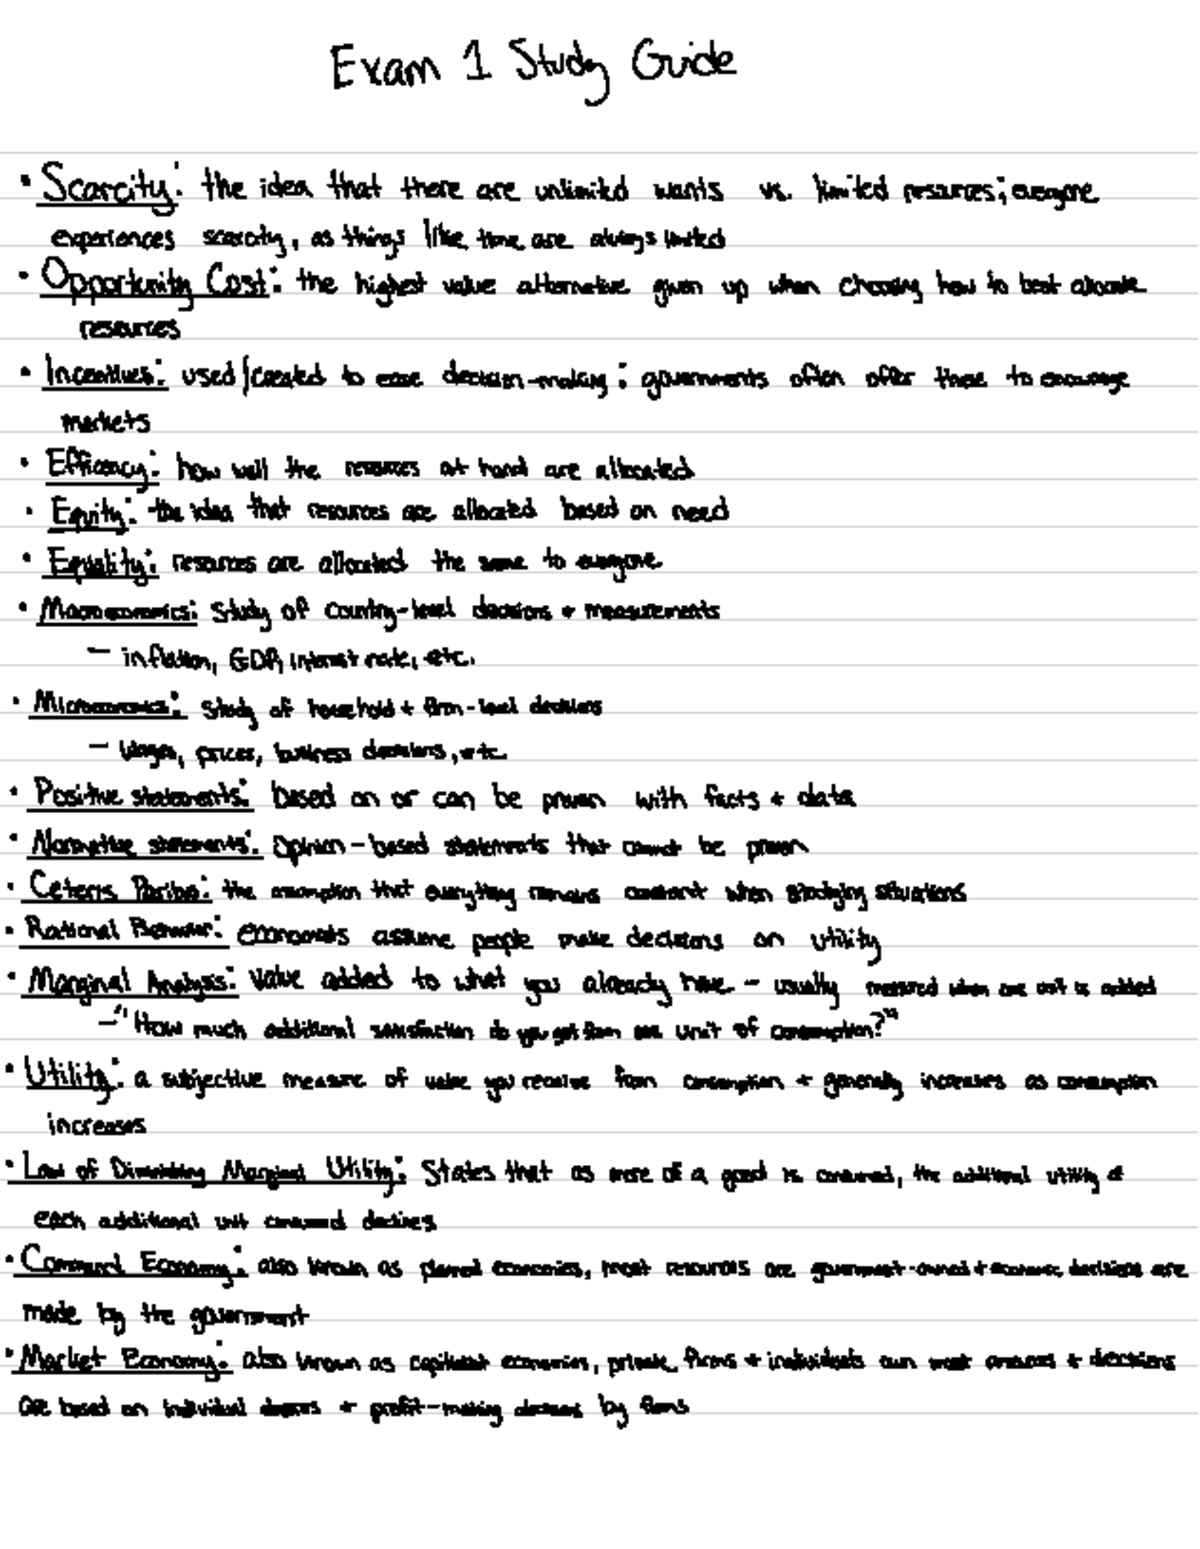 Exam 1 Study Guide
• Scarcity: the idea that there are unlimited wants vs. limited resources; everyone
experiences scarcity, as things like time are always limited
• Opportunity Cost: the highest value alternative given up when choosing how to best allocate
resources
• Incentives: used/created to ease decision-making; governments often offer these to encourage
markets
• Efficency: how well the resources at hand are allocated
• Equity: the idea that resources are allocated based on need
• Equality: resources are allocated the same to everyone
• Macroeconomics: Study of Country-level decisions + measurements
— inflation, GDP, interest rate, etc.
• Microeconomics: Study of household + firm-level decisions
— Wages, prices, business decisions, etc.
• Positive statements: based on or can be proven with facts + data
• Normative statements: Opinion-based statements that cannot be proven
• Ceteris Paribus: the assumption that everything remains constant when studying situations
• Rational Behavior: economists assume people make decisions on utility
• Marginal Analysis: Value added to what you already have - usually measured when one unit is added
—"How much additional satisfaction do you get from one unit of consumption?"
• Utility: a subjective measure of value you receive from consumption + generally increases as consumption
increases
• Law of Diminishing Marginal Utility: States that as more of a good is consumed, the additional utility of
each additional unit consumed declines
• Command Economy: also known as planned economies, most resources are government-owned + economic decisions are
made by the government
• Market Economy: also known as capitalist economies, private firms + individuals own most resources + decisions
are based on individual desires + profit-making decisions by firms